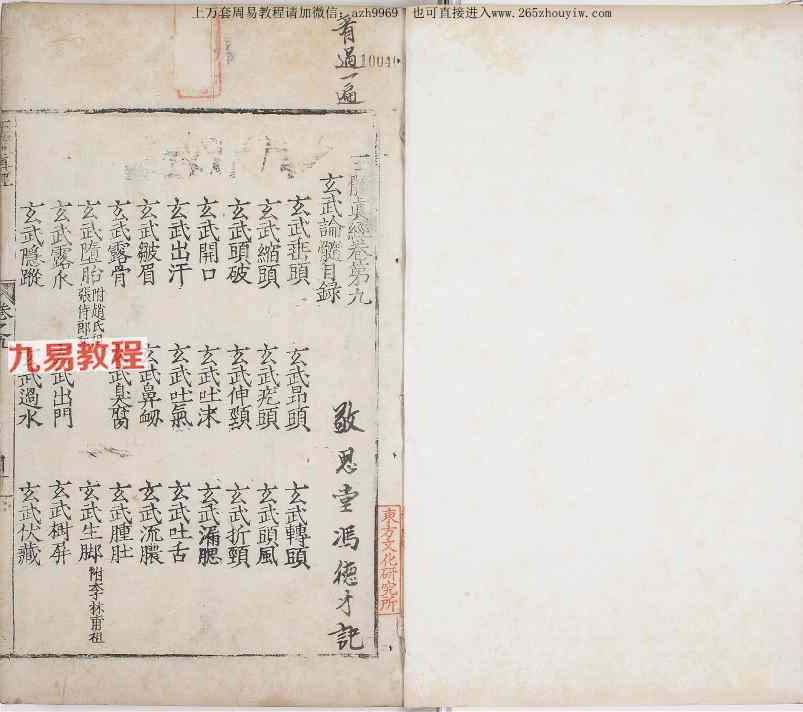 上万套周易教程请加微信：azh9969 也可直接进入www.265zhouyiw.com
看過一遍
10040
東方文化研究所
真經卷第九
玄武論髓目錄
敬思堂馮德才記
玄武垂頭 玄武昂頭 玄武轉頭
玄武縮頭 玄武頭 玄武頭風
玄武頭破 玄武伸頸 玄武折頸
玄武開口 玄武吐沫 玄武漏腮
玄武出汗 玄武吐氣 玄武吐舌
玄武皺眉 玄武鼻衂 玄武流膿
玄武露骨 武臭腐 玄武腫肚
玄武墮胎 附趙氏祖 張侍郎 玄武生脚 附李林甫祖
玄武露水 武出門 玄武樹屏
玄武隱蹤 武過水 玄武伏藏
九易教程